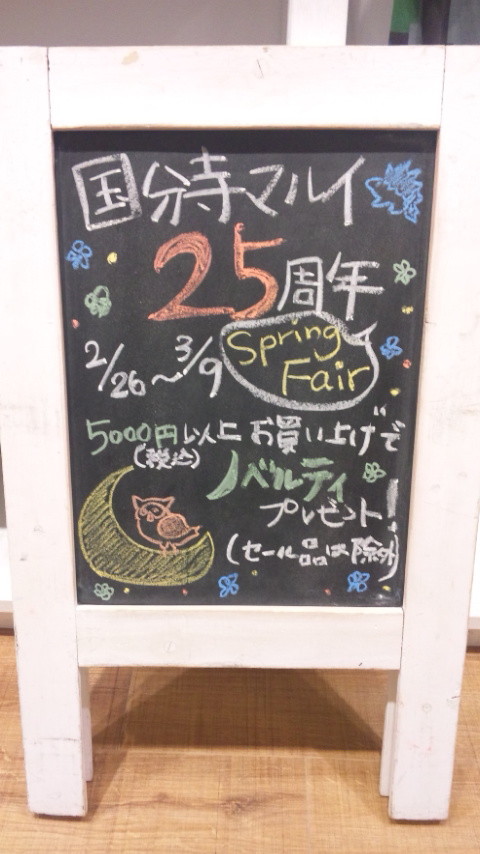 国分寺マルイ
25周年
2/26～3/9 Spring Fair
5000円以上お買い上げで
(税込)
ノベルティ
プレゼント!
(セール品は除外)